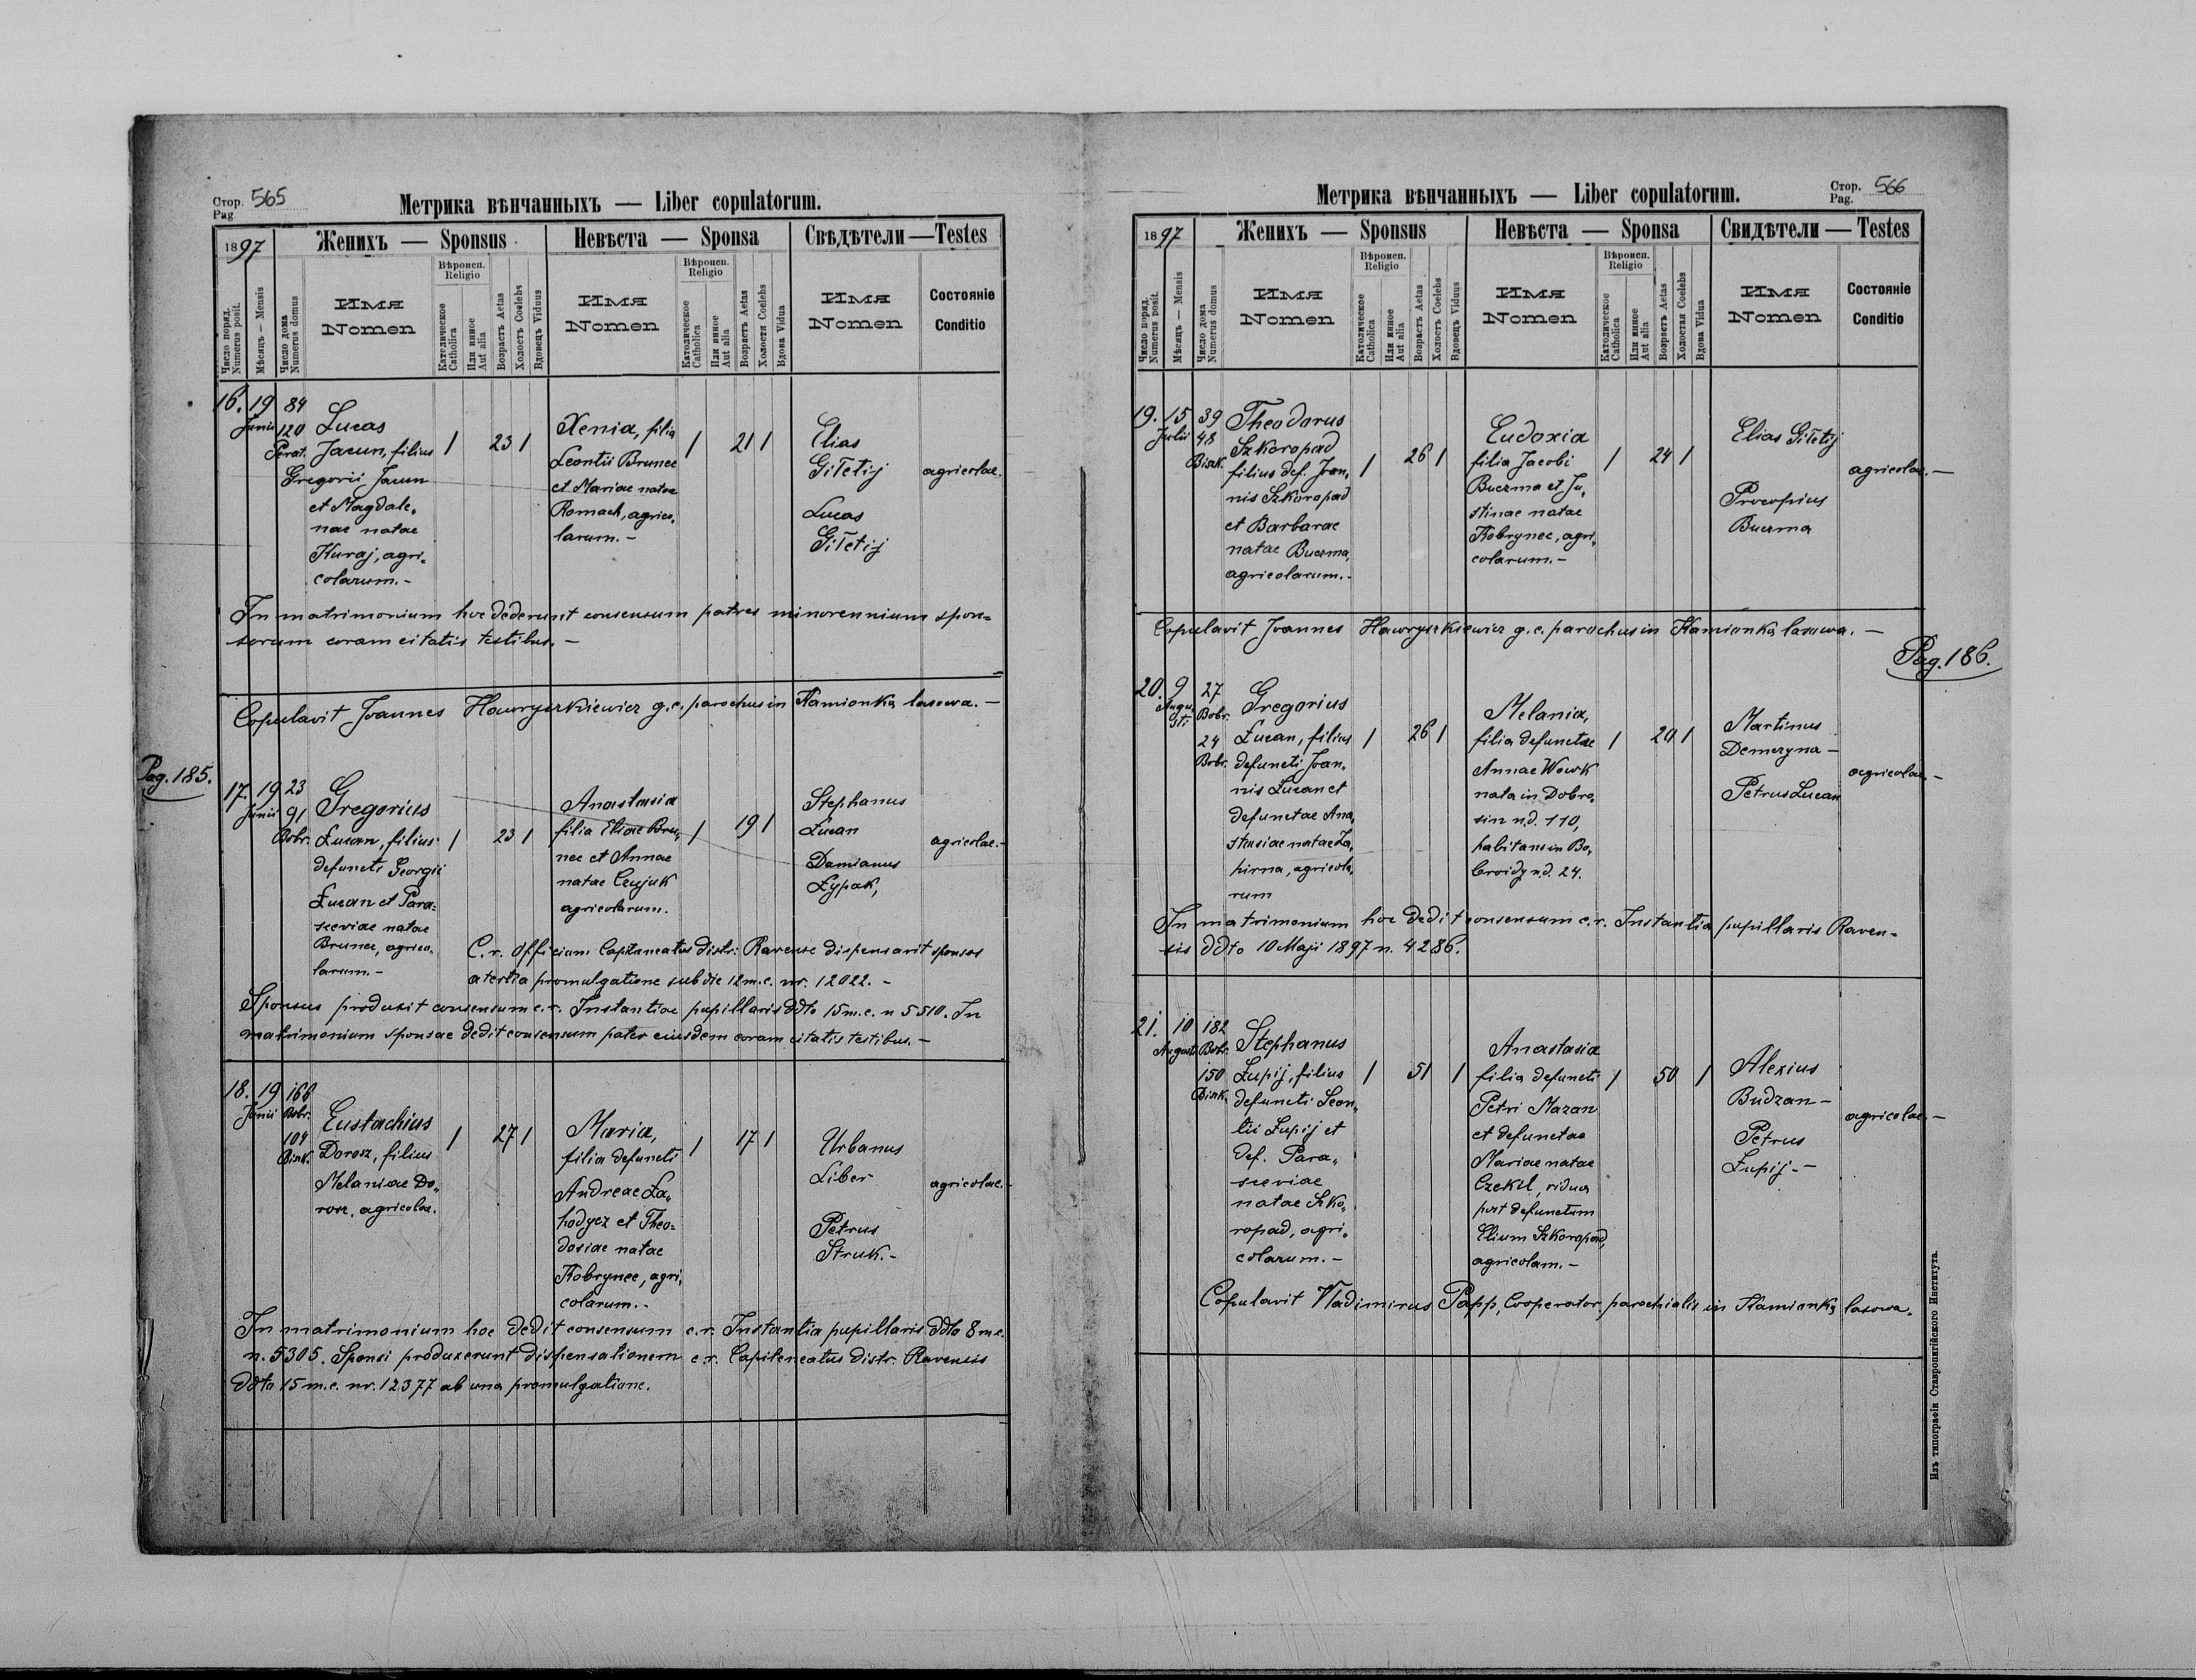 Стор. Pag. 565
Метрика вѣнчанныхъ — Liber copulatorum.
1897
Женихъ — Sponsus
Невѣста — Sponsa
Свѣдѣтели — Testes
Число поряд. Numerus posit.
Мѣсяцъ — Mensis
Число дома Numerus domus
Имя Nomen
Вѣроисп. Religio
Католическое Catholica
Или инное Aut alia
Возрастъ Aetas
Холостъ Coelebs
Вдовецъ Viduus
Имя Nomen
Вѣроисп. Religio
Католическое Catholica
Или инное Aut alia
Возрастъ Aetas
Холостя Coelebs
Вдова Vidua
Имя Nomen
Состояніе Conditio
16. 19 Junii
84
120
Perat.
Lucas
Jacun, filius
Gregorii Jacun
et Magdale„
nae natae
Kuraj, agri„
colarum.-
/ 23 /
Xenia, filia
Leontii Brunec
et Mariae natae
Romach, agrico„
larum.-
/ 21 /
Elias
Giletij
Lucas
Giletij
agricolae.
In matrimonium hoc dederunt consensum patres minorennium spon=
sorum coram citatis testibus.-
Copulavit Joannes Hawryszkiewicz g.c. parochus in Kamionka lasowa.-
Pag. 185.
17. 19 Junii
23
91
Bobr.
Gregorius
Łucan, filius
defuncti Georgii
Łucan et Para=
sceviae natae
Brunec, agrico„
larum.-
/ 23 /
Anastasia
filia Eliae Bru„
nec et Annae
natae Czujuk
agricolarum.
/ 19 /
Stephanus
Łucan
Damianus
Łypak,
agricolae.-
C.r. Officium Capitaneatus distr. Ravense dispensavit sponsos
a tertia promulgatione sub die 12 m.c. nr. 12022.-
Sponsus produxit consensum c.r. Instantiae pupillaris ddto 15 m.c. n 5510. In
matrimonium sponsae dedit consensum pater eiusdem coram citatis testibus.-
18. 19 Junii
166
Bobr.
104
Bisk.
Eustachius
Dorosz, filius
Melaniae Do„
rosz, agricolae.
/ 27 /
Maria,
filia defuncti
Andreae Ła„
hodycz et Theo=
dosiae natae
Kobrynec, agri„
colarum.-
/ 17 /
Urbanus
Liber
Petrus
Struk.-
agricolae.-
In matrimonium hoc dedit consensum c.r. Instantia pupillaris ddto 8 m.c.
n. 5305. Sponsi produxerunt dispensationem c.r. Capitaneatus distr. Ravensis
ddto 15 m.c. nr. 12377 ab una promulgatione.
Метрика вѣнчанныхъ — Liber copulatorum.
Стор. Pag. 566
1897
Женихъ — Sponsus
Невѣста — Sponsa
Свидѣтели — Testes
Число поряд. Numerus posit.
Мѣсяцъ — Mensis
Число дома Numerus domus
Имя Nomen
Вѣроисп. Religio
Католическое Catholica
Или инное Aut alia
Возрастъ Aetas
Холостъ Coelebs
Вдовецъ Viduus
Имя Nomen
Вѣроисп. Religio
Католическое Catholica
Или инное Aut alia
Возрастъ Aetas
Холостая Coelebs
Вдова Vidua
Имя Nomen
Состояніе Conditio
19. 15 Julii
39
48
Bisk.
Theodorus
Szkoropad
filius def. Joan„
nis Szkoropad
et Barbarae
natae Buczma,
agricolarum.-
/ 26 /
Eudoxia
filia Jacobi
Buczma et Ju„
stinae natae
Kobrynec, agri„
colarum.-
/ 24 /
Elias Giletij
Procopius
Buczma
agricolae.-
Copulavit Joannes Hawryszkiewicz g.c. parochus in Kamionka lasowa.-
Pag. 186.
20. 9 Augusti
27
Bobr.
24
Bobr.
Gregorius
Łucan, filius
defuncti Joan„
nis Łucan et
defunctae Ana„
stasiae natae Za„
hirna, agricola„
rum
/ 26 /
Melania,
filia defunctae
Annae Wowk
nata in Dobro„
sin n.d. 110,
habitans in Bo„
broidy n.d. 24.
/ 20 /
Martinus
Demczyna-
Petrus Łucan
agricolae.-
In matrimonium hoc dedit consensum c.r. Instantia pupillaris Raven=
sis ddto 10 Maji 1897 n. 4286.
21. 10 Augusti
182
Bobr.
150
Bisk.
Stephanus
Łupij, filius
defuncti Leon„
tii Łupij et
def. Para„
sceviae
natae Szko„
ropad, agri„
colarum.-
/ 51 /
Anastasia
filia defuncti
Petri Mazan
et defunctae
Mariae natae
Czekil, vidua
post defunctum
Elium Szkoropad,
agricolam.-
/ 50 /
Alexius
Budzan-
Petrus
Łupij.-
agricolae.-
Copulavit Vladimirus Papp, Cooperator parochialis in Kamionka lasowa.
Изъ типографіи Ставропигійского Института.